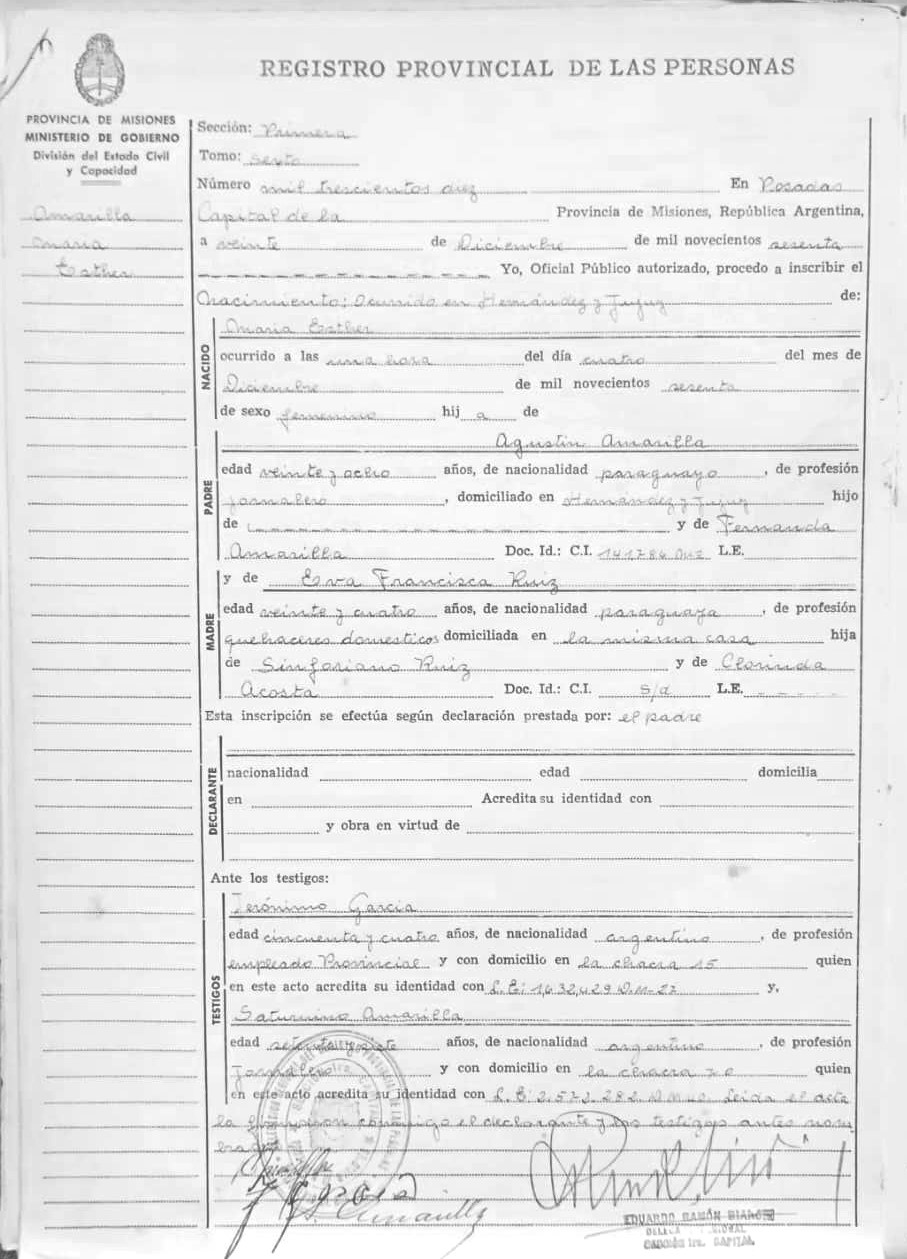 REGISTRO PROVINCIAL DE LAS PERSONAS
PROVINCIA DE MISIONES
MINISTERIO DE GOBIERNO
División del Estado Civil
y Capacidad
Amarilla
Maria
Esther
Sección: Primera
Tomo: Sexto
Número mil trescientos diez En Posadas
Capital de la Provincia de Misiones, República Argentina,
a veinte de Diciembre de mil novecientos sesenta
Yo, Oficial Público autorizado, procedo a inscribir el
Nacimiento: Ocurrido en Hernández y Jujuy de:
NACIDO
Maria Esther
ocurrido a las una hora del día cuatro del mes de
Diciembre de mil novecientos sesenta
de sexo femenino hij a de
PADRE
Agustin Amarilla
edad veinte y ocho años, de nacionalidad paraguayo, de profesión
Jornalero, domiciliado en Hernández y Jujuy hijo
de y de Fernanda
Amarilla Doc. Id.: C.I. 141.786 L.E.
MADRE
y de Eva Francisca Ruiz
edad veinte y cuatro años, de nacionalidad paraguaya, de profesión
quehaceres domesticos domiciliada en la misma casa hija
de Sinforiano Ruiz y de Clorinda
Acosta Doc. Id.: C.I. s/d L.E.
Esta inscripción se efectúa según declaración prestada por: el padre
DECLARANTE
nacionalidad edad domicilia
en Acredita su identidad con
y obra en virtud de
Ante los testigos:
TESTIGOS
Jerónimo Garcia
edad cincuenta y cuatro años, de nacionalidad argentino, de profesión
empleado Provincial y con domicilio en la chacra 15 quien
en este acto acredita su identidad con L.E: 1.632.429 D.M-27 y,
Saturnino Amarilla
edad setenta y siete años, de nacionalidad argentino, de profesión
Jornalero y con domicilio en la chacra 70 quien
en este acto acredita su identidad con L.E: 2.573.282 D.M 40. Leida el acta
la firmaron conmigo el declarante y los testigos antes nom
brados
J Garcia
S. Amarilla
EDUARDO RAMÓN
CAPITAL